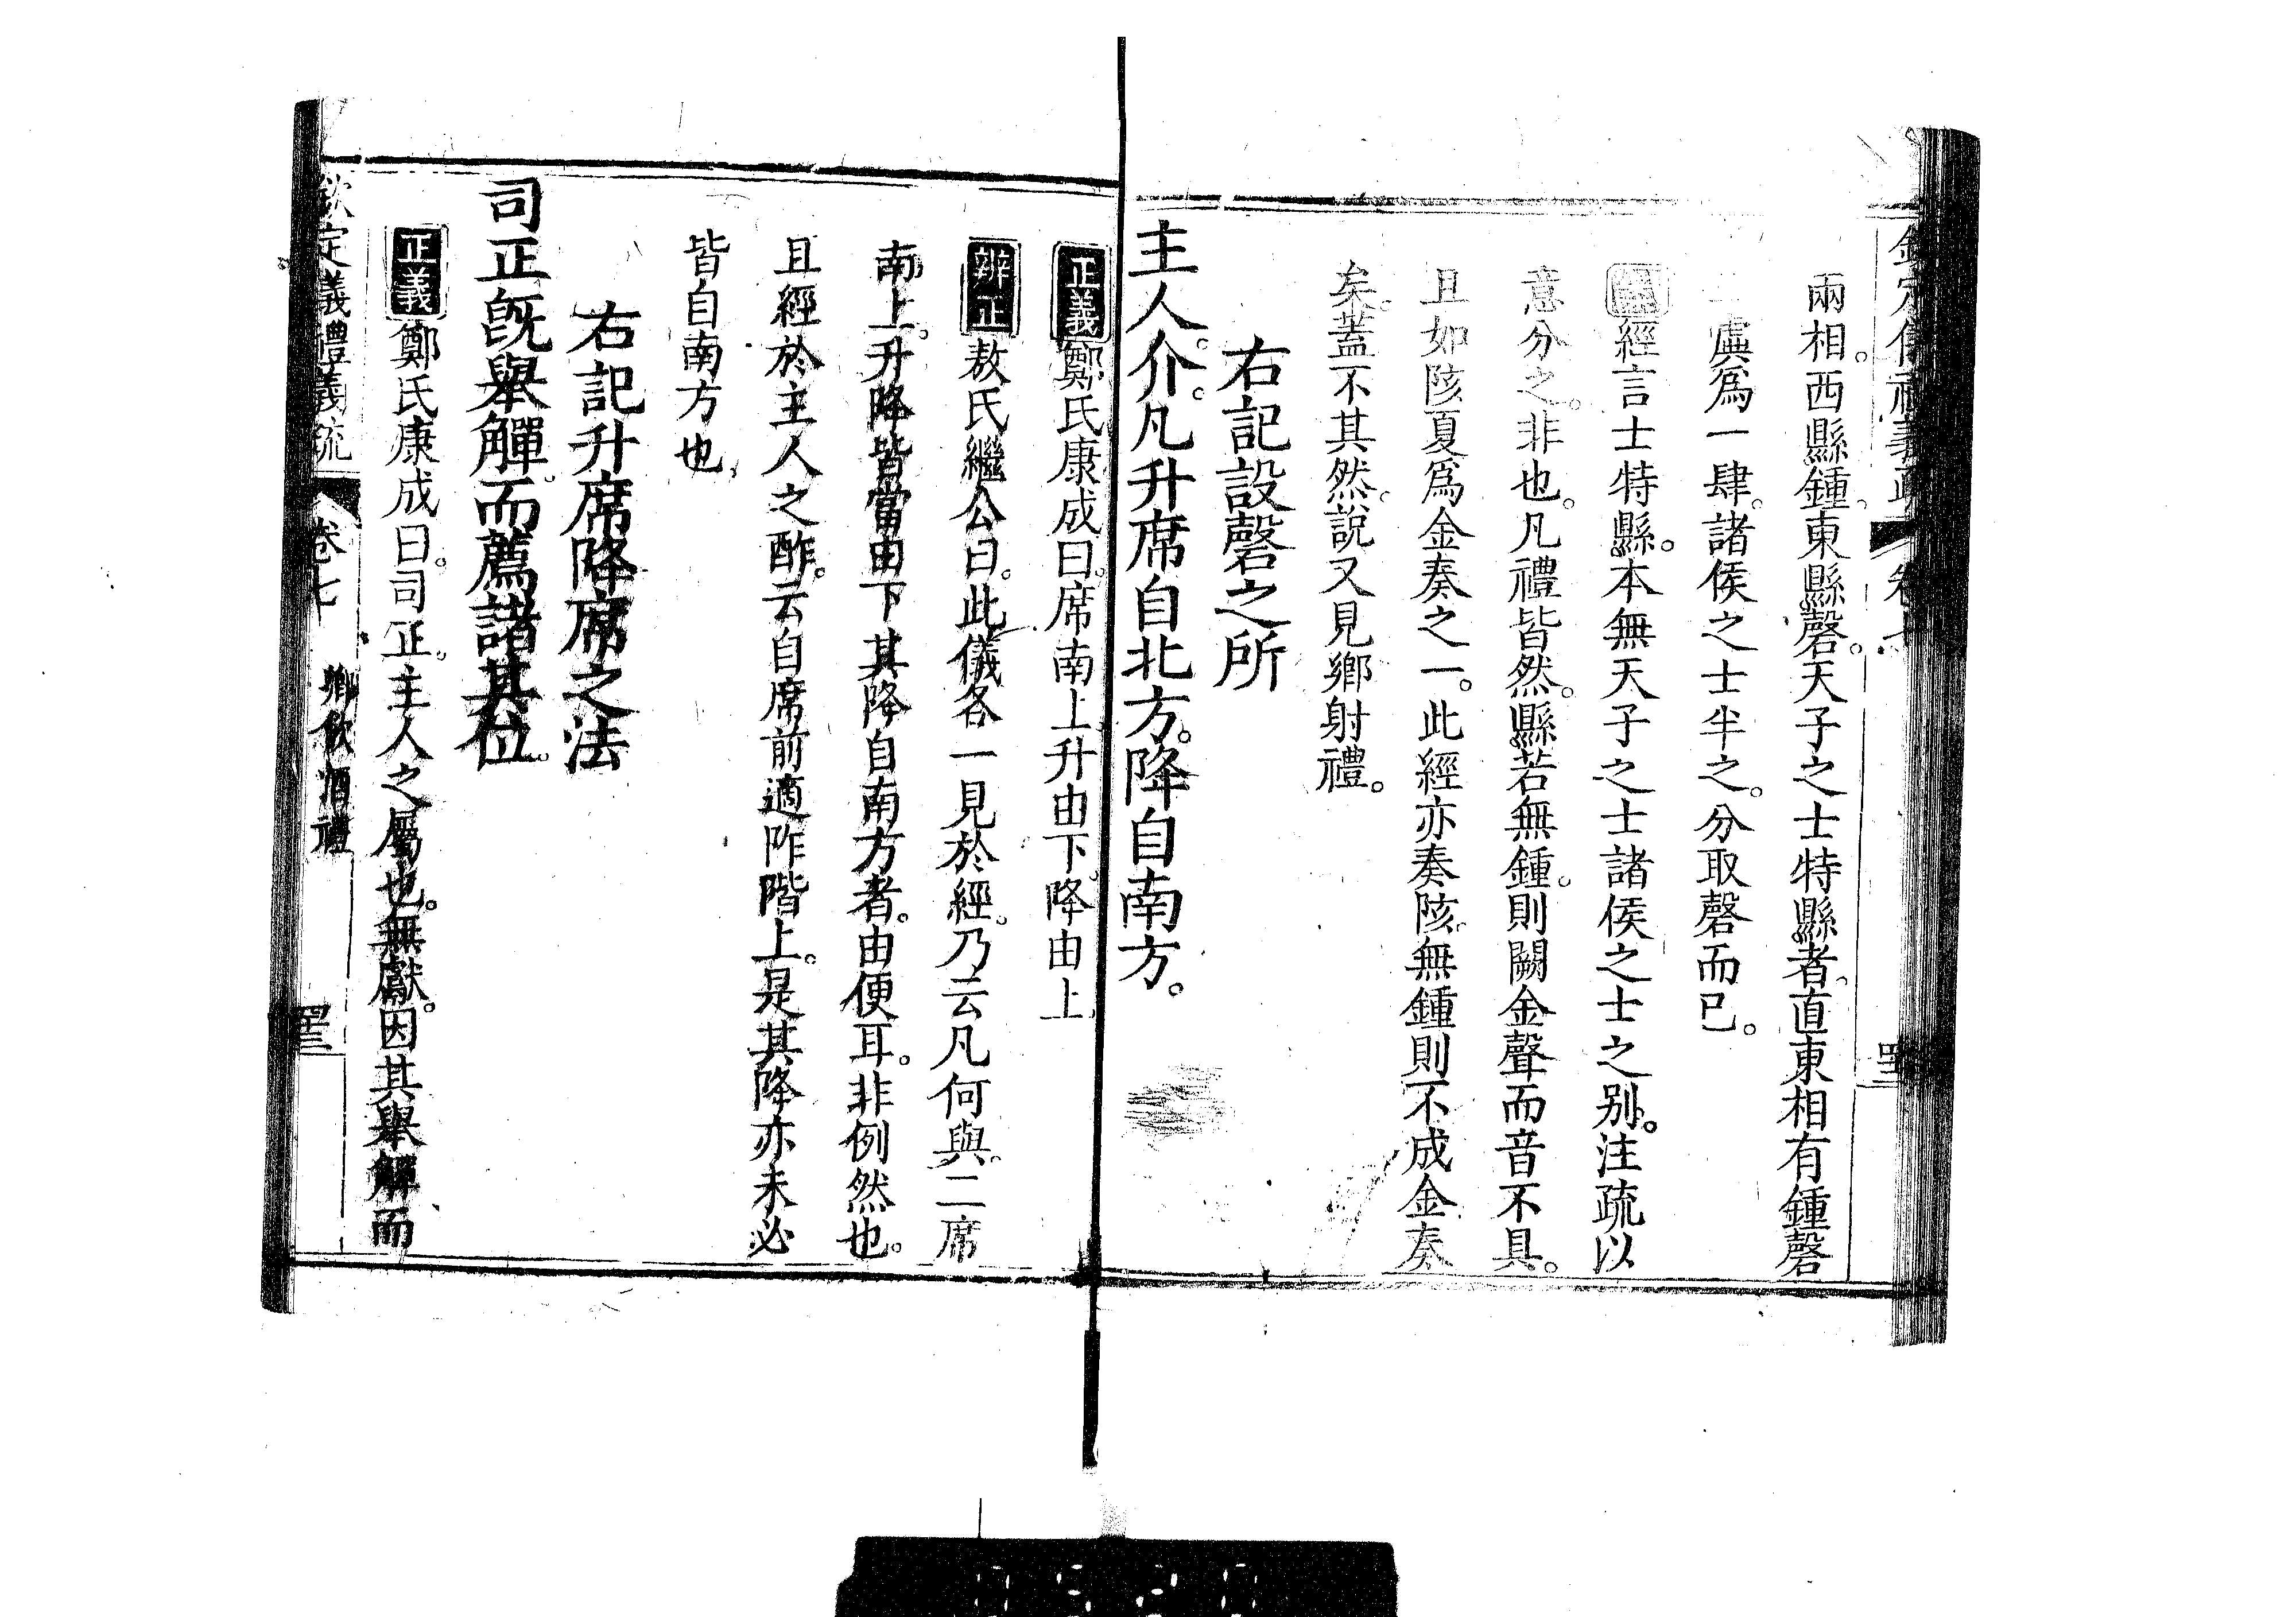 兩相。西縣鍾。東縣磬。天子之士特縣者。直東相有鍾磬
虡爲一肆。諸侯之士半之。分取磬而已。
經言士特縣。本無天子之士諸侯之士之别。注疏以
意分之。非也。凡禮皆然。縣若無鍾。則闕金聲而音不具。
且如陔夏爲金奏之一。此經亦奏陔。無鍾則不成金奏
矣。蓋不其然。說又見鄉射禮。
右記設磬之所
主人。介。凡升席自北方。降自南方。
正義鄭氏康成曰。席南上升由下。降由上
辨正敖氏繼公曰。此儀各一見於經。乃云凡何與。二席
南上。升降皆當由下其降自南方者。由便耳。非例然也。
且經於主人之酢。云自席前適阼階上。是其降亦未必
皆自南方也
右記升席降席之法
司正旣舉觶。而薦諸其位。
正義鄭氏康成曰。司正。主人之屬也。無獻。因其舉觶而
欽定義禮義疏 卷七 鄉飲酒禮